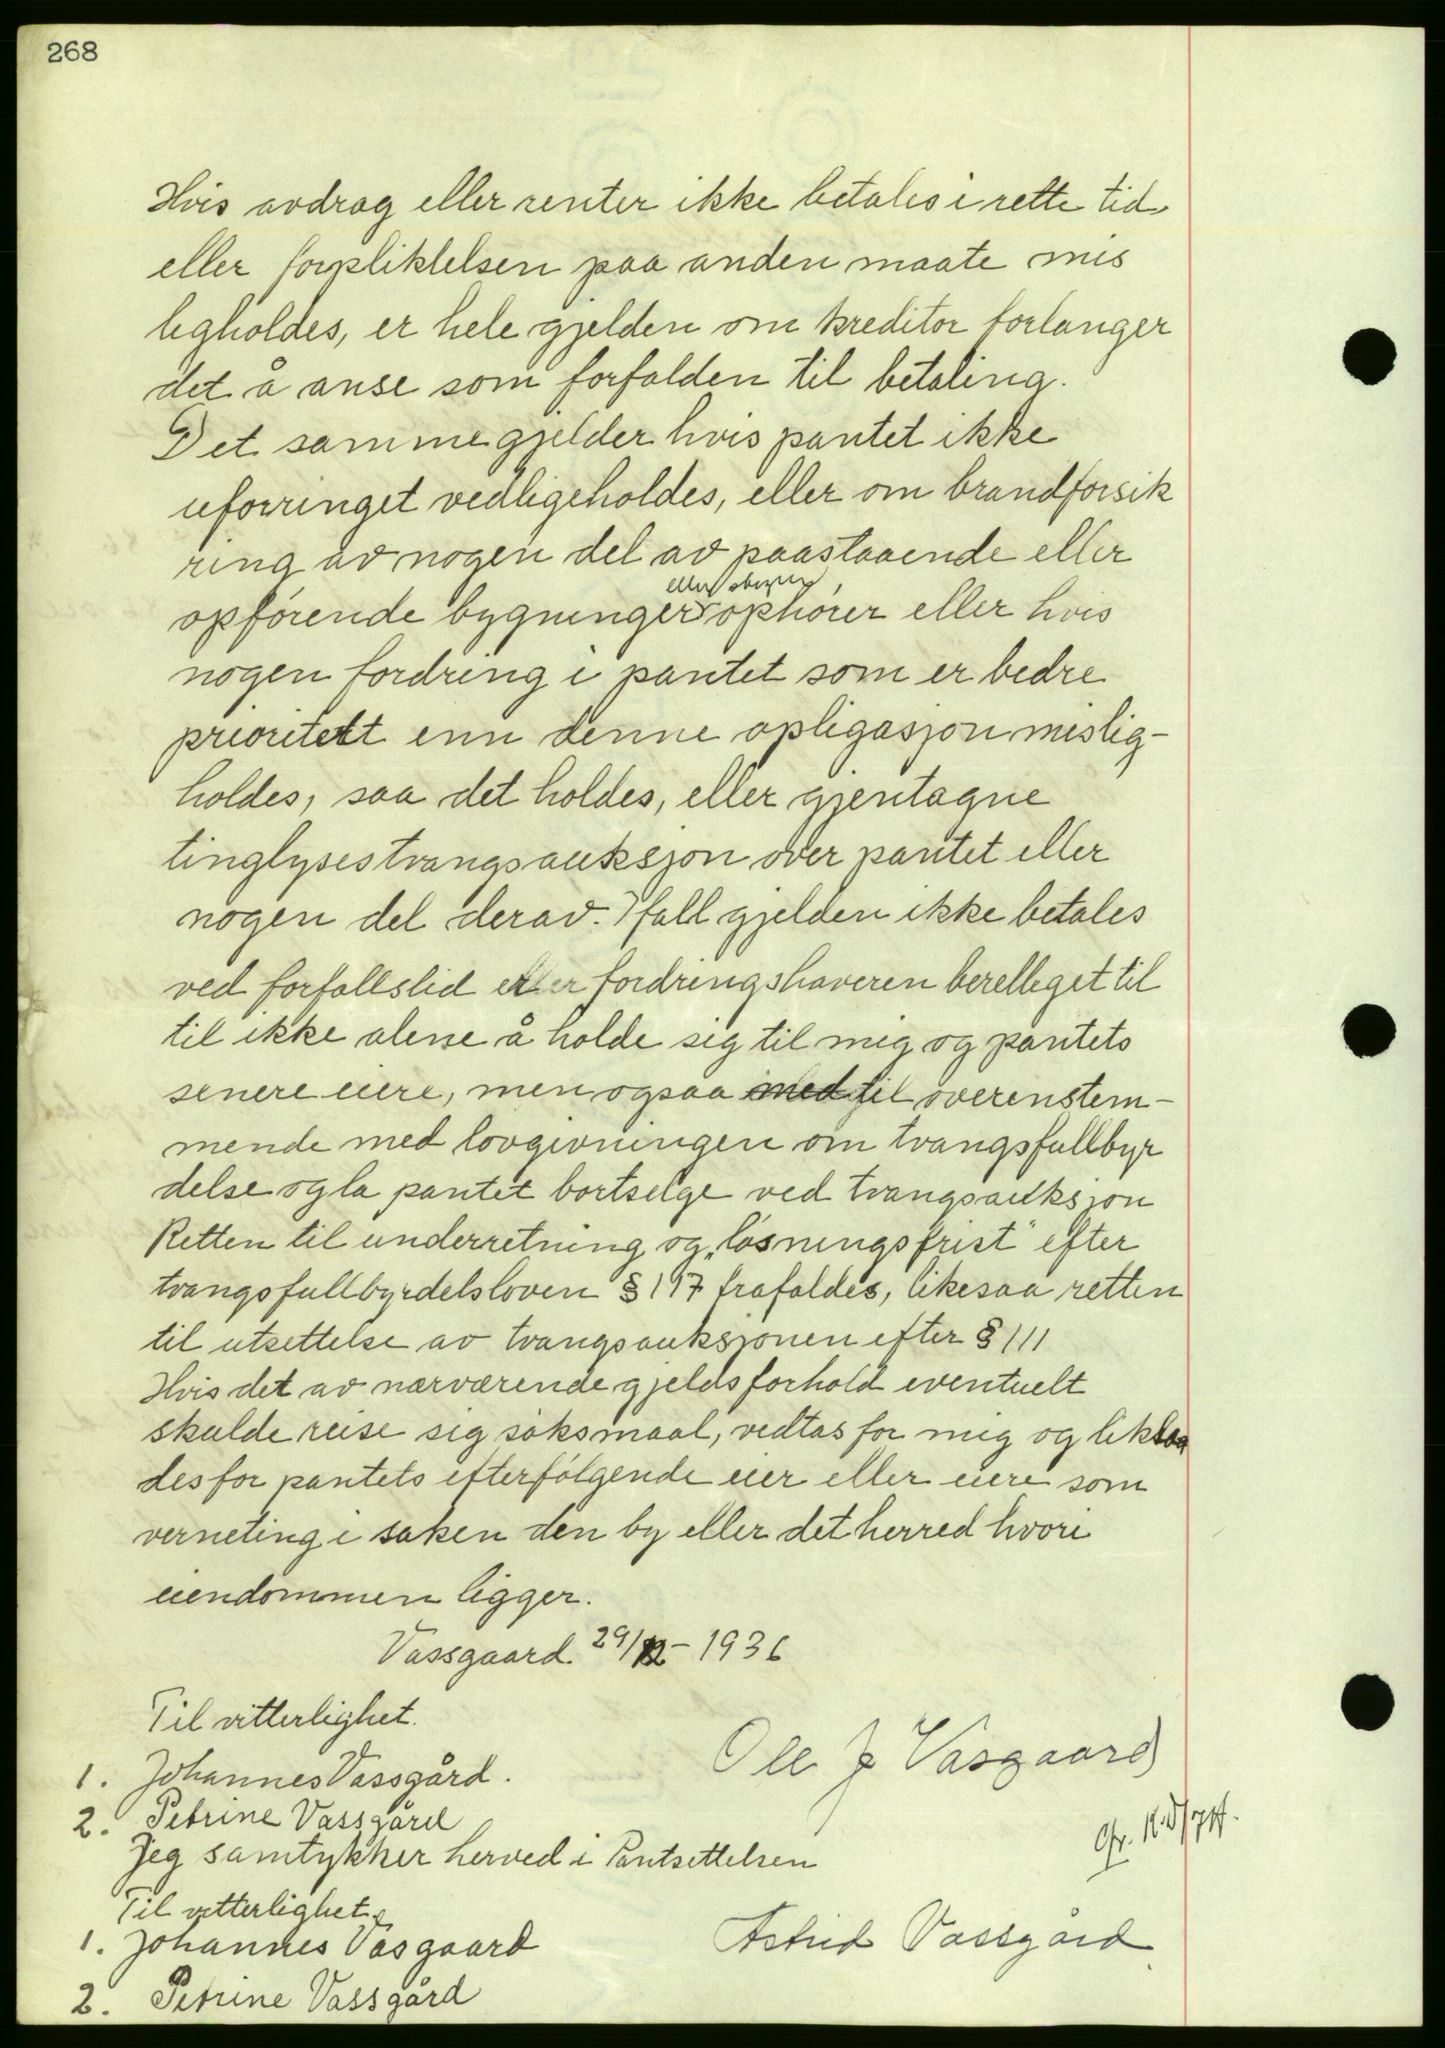 268
Hvis avdrag eller renter ikke betales i rette tid
eller forpliktelsen paa anden maate mis
ligholdes, er hele gjelden om kreditor forlanger
det å anse som forfalden til betaling.
Det samme gjelder hvis pantet ikke
uforringet vedligeholdes, eller om brandforsik
ring av nogen del av paastaaende eller
eller
opførende bygninger ophører eller hvis
nogen fordring i pantet som er bedre
prioritett enn denne opligasjon mislig-
holdes, saa det holdes, eller gjentagne
tinglyses tvangsauksjon over pantet eller
nogen del derav. Ifall gjelden ikke betales
ved forfallstid er fordringshaveren berettiget til
til ikke alene å holde sig til mig og pantets
senere eiere, men ogsaa med til overenstem-
mende med lovgivningen om tvangsfullbyr
delse og la pantet bortselge ved tvangsauksjon
Retten til underretning og „løsningsfrist" efter
tvangsfullbyrdelsloven § 117 frafaldes, likesaa retten
til utsettelse av tvangsauksjonen efter § 111
Hvis det av nærværende gjeldsforhold eventuelt
skulde reise sig søksmaal, vedtas for mig og liklea
des for pantets efterfølgende eier eller eiere som
verneting i saken den by eller det herred hvori
eiendommen ligger.
Vassgaard 29/12 - 1936
Til vitterlighet.
Ole J Vasgaard
1. Johannes Vassgård.
2. Petrine Vassgård
Jeg samtykker herved i Pantsettelsen
Til vitterlighet.
1. Johannes Vasgaard
Astrid Vassgård
2. Petrine Vassgård